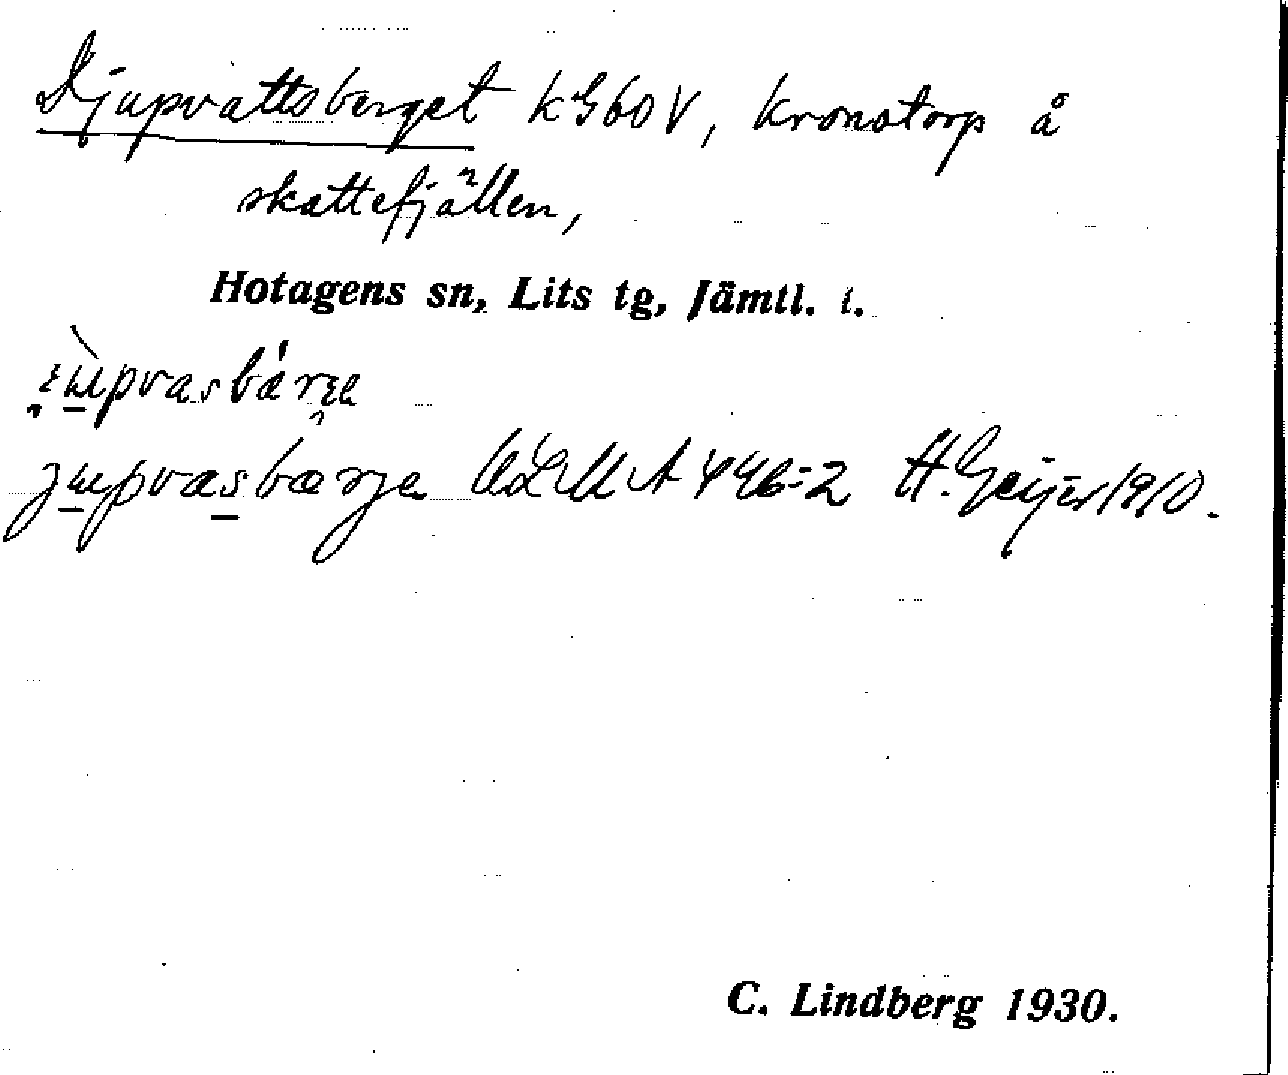 Djupvattsberget kG60V, kronotorp å
skattefjällen,
Hotagens sn, Lits tg, Jämtl. l.
jupvasbærje ULMA 446:2 H. Geijer 1910.
C. Lindberg 1930.